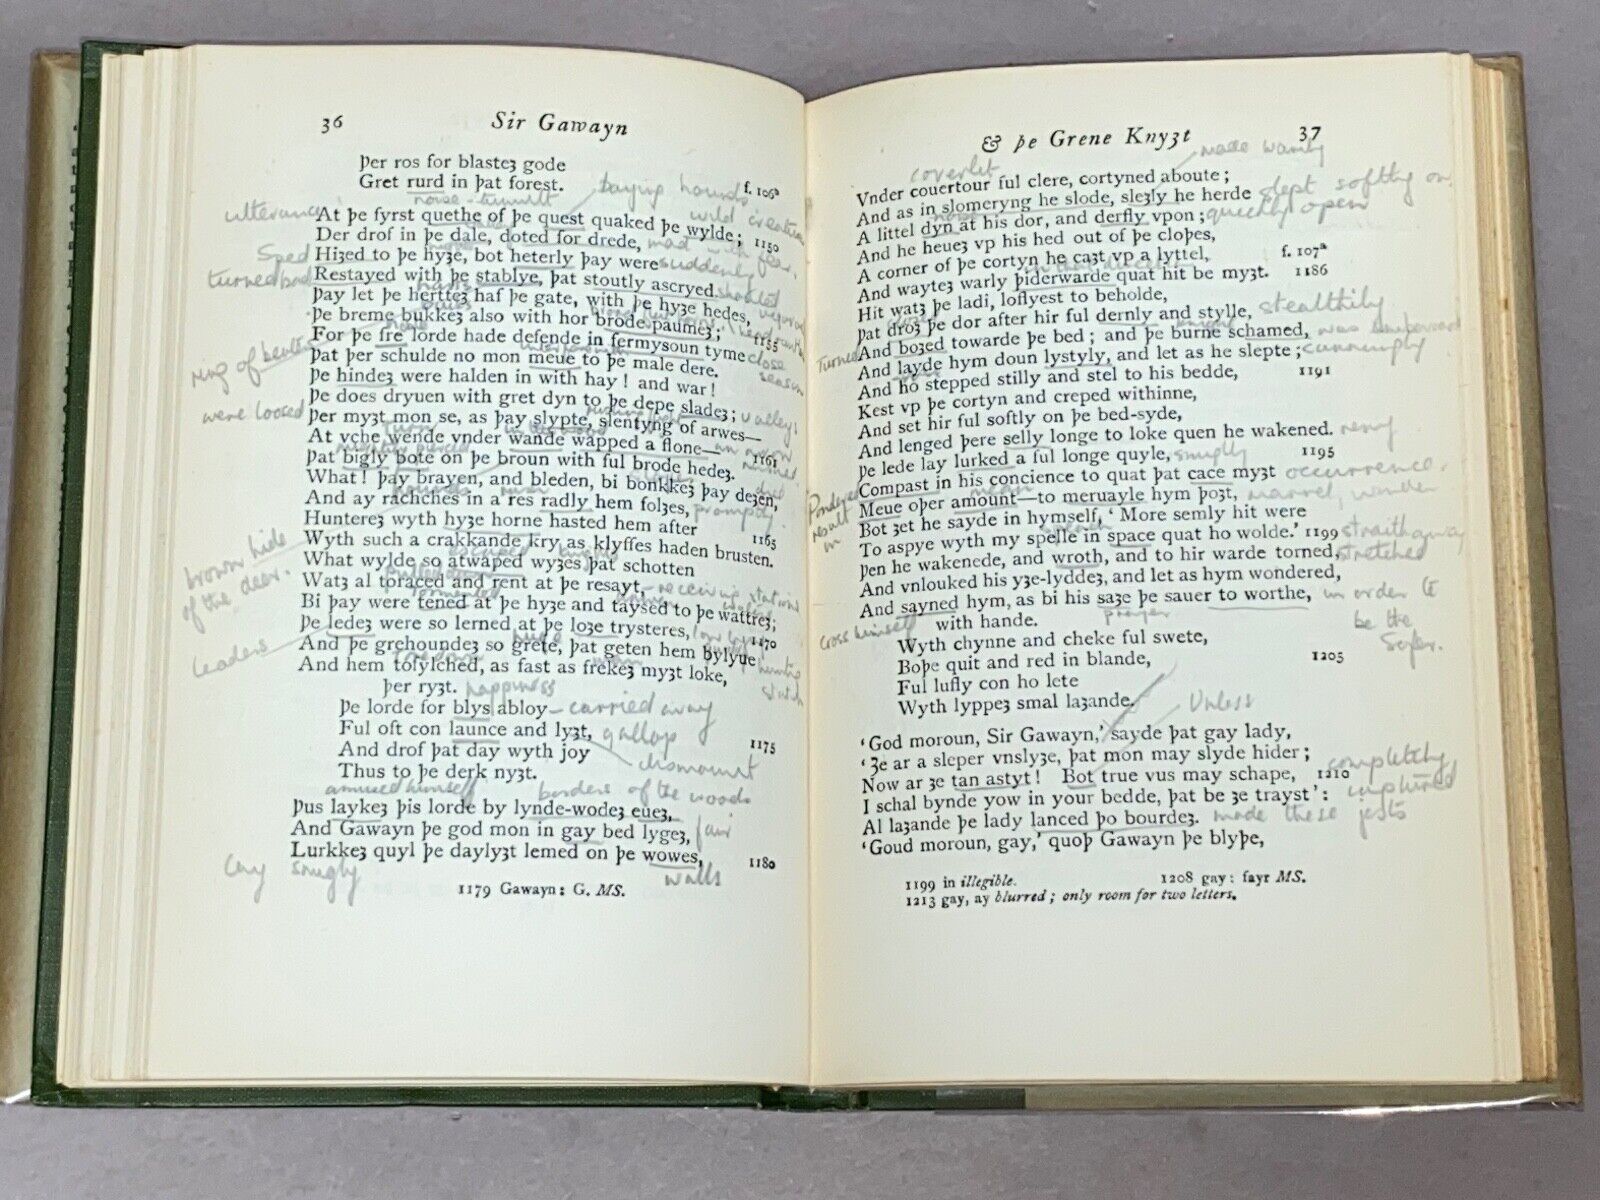 36 Sir Gawayn
Þer ros for blasteȝ gode
Gret rurd in þat forest. f. 106ᵇ
noise - tumult
baying hounds
utterance
At þe fyrst quethe of þe quest quaked þe wylde;
wild creatures
Der drof in þe dale, doted for drede, 1150
mad with fear.
Sped
Hiȝed to þe hyȝe, bot heterly þay were
suddenly
turned back
Restayed with þe stablye, þat stoutly ascryed.
shouted
Þay let þe herttez haf þe gate, with þe hyȝe hedes,
Þe breme bukkeȝ also with hor brode paumeȝ;
For þe fre lorde hade defende in fermysoun tyme 1155
close season
ring of beaters
Þat þer schulde no mon meue to þe male dere.
Þe hindeȝ were halden in with hay! and war!
Þe does dryuen with gret dyn to þe depe sladeȝ;
valleys
were loosed
Þer myȝt mon se, as þay slypte, slentyng of arwes—
At vche wende vnder wande wapped a flone— 1161
an arrow
Þat bigly bote on þe broun with ful brode hedeȝ.
What! þay brayen, and bleden, bi bonkkeȝ þay deȝen,
And ay rachches in a res radly hem folȝes,
promptly.
Huntereȝ wyth hyȝe horne hasted hem after
Wyth such a crakkande kry as klyffes haden brusten. 1165
brown hide of the deer.
What wylde so atwaped wyȝes þat schotten
Watȝ al toraced and rent at þe resayt,
- receiving stations
Bi þay were tened at þe hyȝe and taysed to þe wattreȝ;
Þe ledeȝ were so lerned at þe loȝe trysteres, 1170
leaders
And þe grehoundeȝ so grete, þat geten hem bylyue
And hem tofylched, as fast as frekeȝ myȝt loke,
þer ryȝt.
happiness
Þe lorde for blys abloy
- carried away
Ful oft con launce and lyȝt,
gallop
And drof þat day wyth joy 1175
dismount
Thus to þe derk nyȝt.
amused himself
borders of the woods
Þus laykeȝ þis lorde by lynde-wodeȝ eueȝ,
And Gawayn þe god mon in gay bed lygeȝ,
fair
Lurkkeȝ quyl þe daylyȝt lemed on þe wowes, 1180
lay snugly
walls
1179 Gawayn: G. MS.
& þe Grene Knyȝt 37
made warily
coverlet
Vnder couertour ful clere, cortyned aboute;
And as in slomeryng he slode, sleȝly he herde
slept softly on
A littel dyn at his dor, and derfly vpon;
quickly open
And he heueȝ vp his hed out of þe cloþes,
A corner of þe cortyn he caȝt vp a lyttel, f. 107ᵃ
And wayteȝ warly þiderwarde quat hit be myȝt. 1186
Hit watȝ þe ladi, loflyest to beholde,
Þat droȝ þe dor after hir ful dernly and stylle,
stealthily
And boȝed towarde þe bed; and þe burne schamed,
was embarrassed
Turned
And layde hym doun lystyly, and let as he slepte;
cunningly
And ho stepped stilly and stel to his bedde, 1191
Kest vp þe cortyn and creped withinne,
And set hir ful softly on þe bed-syde,
And lenged þere selly longe to loke quen he wakened.
Þe lede lay lurked a ful longe quyle, 1195
snugly
Compast in his concience to quat þat cace myȝt
occurrence.
Pondered
result in
Meue oþer amount—to meruayle hym þoȝt,
marvel, wonder
Bot ȝet he sayde in hymself, ‘More semly hit were
To aspye wyth my spelle in space quat ho wolde.’ 1199
straightaway
Þen he wakenede, and wroth, and to hir warde torned,
stretched
And vnlouked his yȝe-lyddeȝ, and let as hym wondered,
And sayned hym, as bi his saȝe þe sauer to worthe,
in order to be the safer.
cross himself
prayer
with hande.
Wyth chynne and cheke ful swete,
Boþe quit and red in blande, 1205
Ful lufly con ho lete
Wyth lyppeȝ smal laȝande.
Unless
‘God moroun, Sir Gawayn,’ sayde þat gay lady,
‘Ȝe ar a sleper vnslyȝe, þat mon may slyde hider;
Now ar ȝe tan astyt! Bot true vus may schape, 1210
completely captured
I schal bynde yow in your bedde, þat be ȝe trayst’:
Al laȝande þe lady lanced þo bourdeȝ.
made these jests
‘Goud moroun, gay,’ quoþ Gawayn þe blyþe,
1199 in illegible. 1208 gay: fayr MS.
1213 gay, ay blurred; only room for two letters.